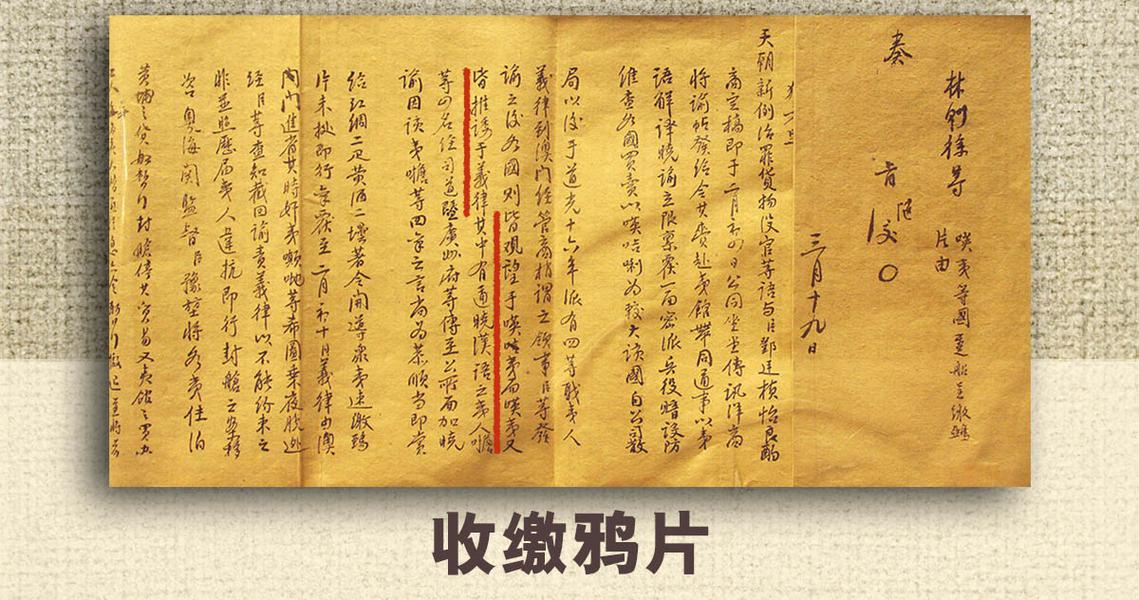 林則徐等
𠸄夷等國躉船呈繳鴉
片由
奏
三月十九日
天朝新例治罪貨物沒官等語与臣鄧廷楨怡良酌
商定稿即于二月初四日公同坐堂傳訊洋商
將諭帖發給令其賫赴夷館帶同通事以夷
語解譯曉諭立限稟覆一面密派兵役暗設防
維查各國買賣以𠸄咭唎為較大該國自公散
局以後于道光十六年派有四等職夷人
義律到澳門經管商梢謂之領事臣等發
諭之後各國則皆觀望于𠸄夷而𠸄夷又
皆推諉于義律其中有通曉漢語之夷人
等四名經司道暨廣州府等傳至公所面加曉
諭因該夷等四等之言尚為恭順當即賞
給紅綢二疋黃酒二壜著令開導衆夷速繳鴉
片未批即行稟覆至二月初十日義律由澳
門進省其時奸夷等希圖乘夜脫逃
經臣等查知截回諭責義律以不能約束之
非並照歷届夷人違抗即行封艙之案移
咨粵海関監督臣豫堃將各夷住泊
黃埔之貨船暫行封艙停其貿易又夷館之買办
收缴鸦片